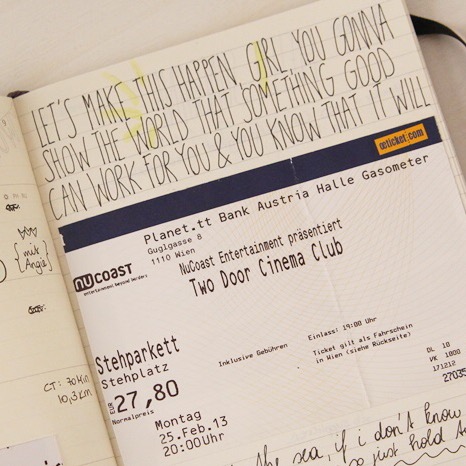 LET'S MAKE THIS HAPPEN, GIRL. YOU GONNA
SHOW THE WORLD THAT SOMETHING GOOD
CAN WORK FOR YOU & YOU KNOW THAT IT WILL
oeticket.com
Planet.tt Bank Austria Halle Gasometer
Guglgasse 8
1110 Wien
nuCOAST
entertainment beyond borders
NuCoast Entertainment präsentiert
Two Door Cinema Club
{mit
Angie}
Stehparkett
Stehplatz
Inklusive Gebühren
Einlass: 19:00 Uhr
Ticket gilt als Fahrschein
in Wien (siehe Rückseite)
EUR 27,80
Normalpreis
DL 10
VK 1000
171212
27035
CT: 70 Min
10,3 km
Montag
25.Feb.13
20:00Uhr
the sea, if i don't know
so just hold